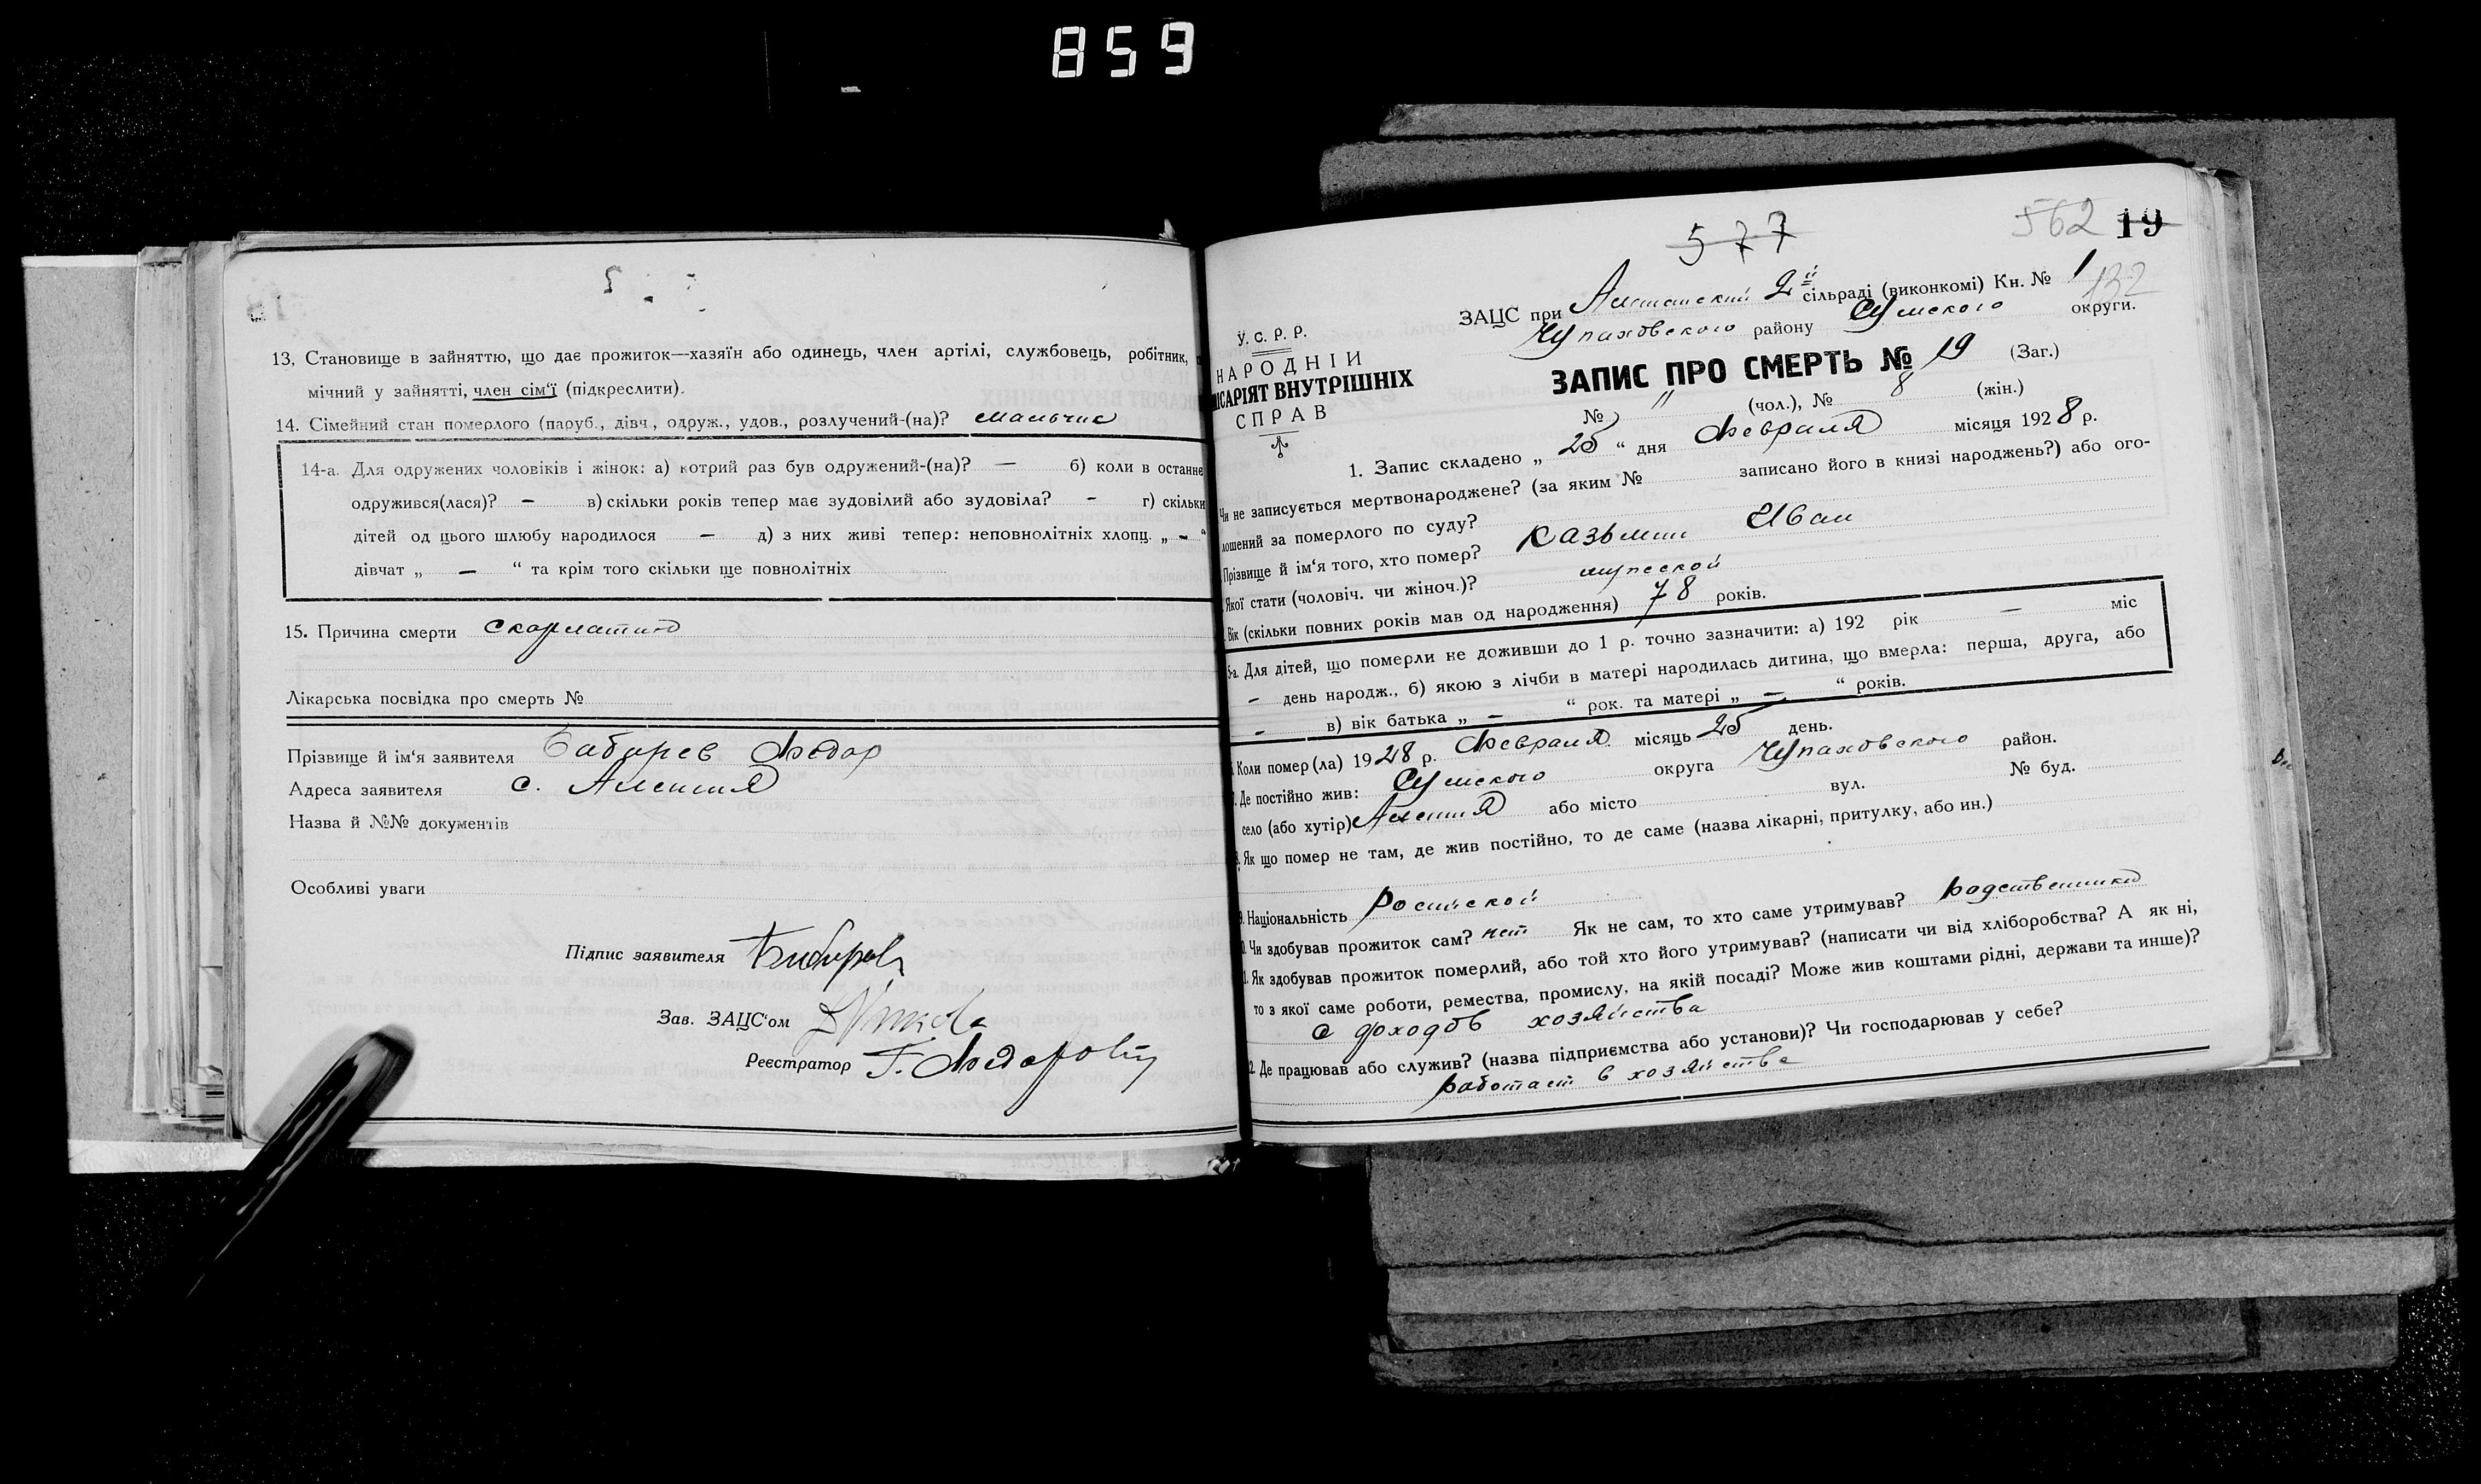 859
13. Становище в зайняттю, що дає прожиток—хазяїн або одинець, член артілі, службовець, робітник,
мічний у зайнятті, член сім'ї (підкреслити).
14. Сімейний стан померлого (паруб., дівч., одруж., удов., розлучений-(на)? мальчик
14-а. Для одружених чоловіків і жінок: а) котрий раз був одружений-(на)? — б) коли в останне
одружився(лася)? – в) скільки років тепер має зудовілий або зудовіла? – г) скільки
дітей од цього шлюбу народилося – д) з них живі тепер: неповнолітніх хлопц. „ – “
дівчат „ — “ та крім того скільки ще повнолітніх
15. Причина смерти Скорлатина
Лікарська посвідка про смерть №
Прізвище й ім'я заявителя Федор
Адреса заявителя с. Алешня
Назва й №№ документів
Особливі уваги
Підпис заявителя
Зав. ЗАЦС'ом
Реєстратор Г.
577
562 19
132
У. С. Р. Р.
НАРОДНІИ
ІСАРІЯТ ВНУТРІШНІХ
СПРАВ
ЗАЦС при 2й сільраді (виконкомі) Кн. № 1
Чупаховского району Сумского округи.
ЗАПИС ПРО СМЕРТЬ № 19 (Заг.)
№ 11 (чол.), № 8 (жін.)
1. Запис складено „ 25 “ дня Февраля місяця 1928 р.
Чи не записується мертвонароджене? (за яким № записано його в книзі народжень?) або ого-
лошений за померлого по суду?
Прізвище й ім'я того, хто помер? Казьмин Иван
Якої стати (чоловіч. чи жіноч.)? мужской
Вік (скільки повних років мав од народження) 78 років.
5-а. Для дітей, що померли не доживши до 1 р. точно зазначити: а) 192 рік — міс
– день народж., б) якою з лічби в матері народилась дитина, що вмерла: перша, друга, або
– в) вік батька „ – “ рок. та матері „ — “ років.
Коли помер(ла) 1928 р. Февраля місяць 25 день.
Де постійно жив: Сумского округа Чупаховского район.
село (або хутір) Алешня або місто вул. № буд.
Як що помер не там, де жив постійно, то де саме (назва лікарні, притулку, або ин.)
9. Національність Росийской
Чи здобував прожиток сам? нет Як не сам, то хто саме утримував? Родственники
1. Як здобував прожиток померлий, або той хто його утримував? (написати чи від хліборобства? А як ні,
то з якої саме роботи, ремества, промислу, на якій посаді? Може жив коштами рідні, держави та инше)?
С доходов хозяйства
2. Де працював або служив? (назва підприємства або установи)? Чи господарював у себе?
работает в хозяйстве